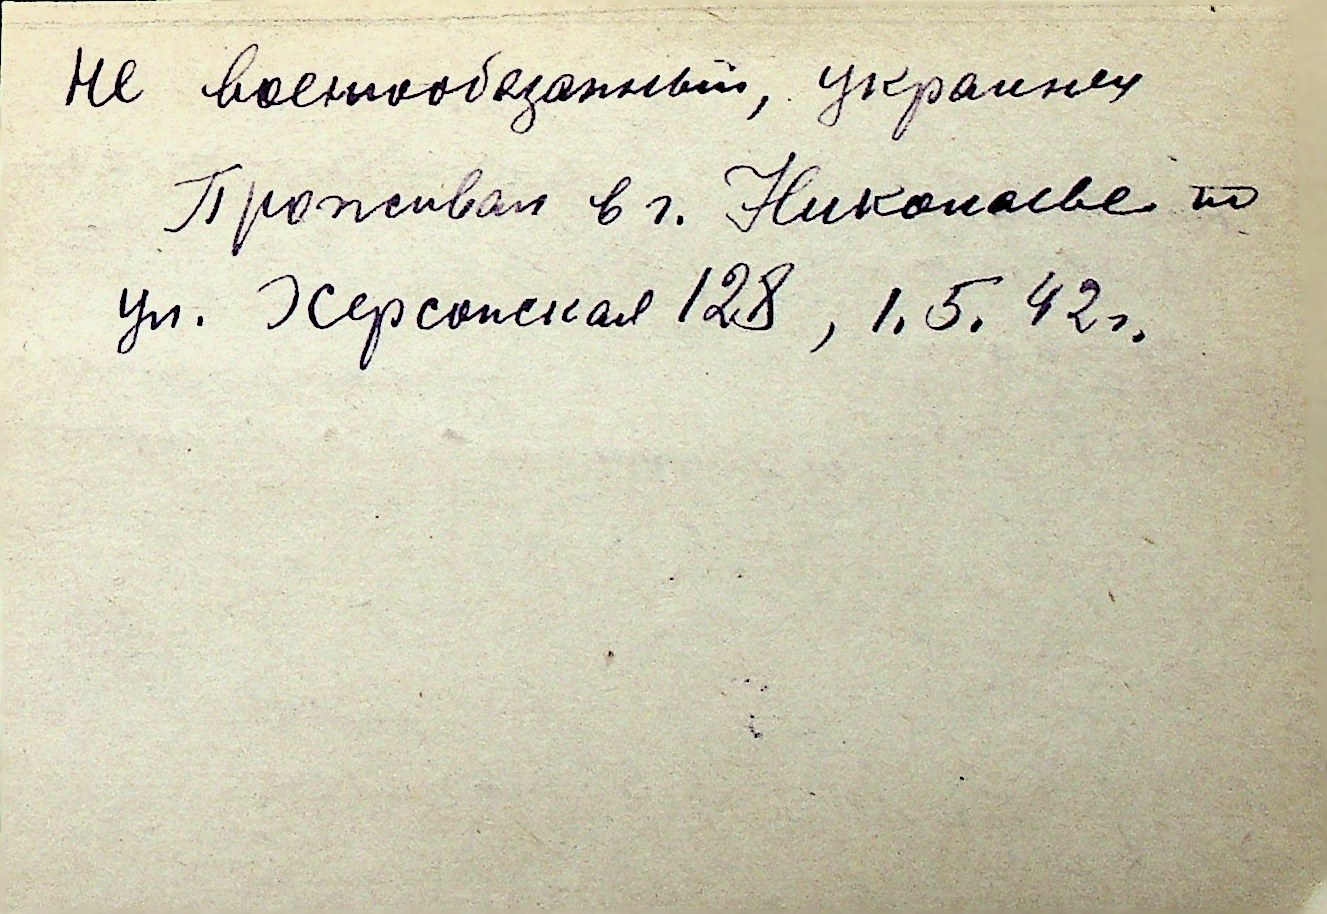 Не военнообязанный, украинец
Проживал в г. Николаеве по
ул. Херсонская 128, 1.5.42г.